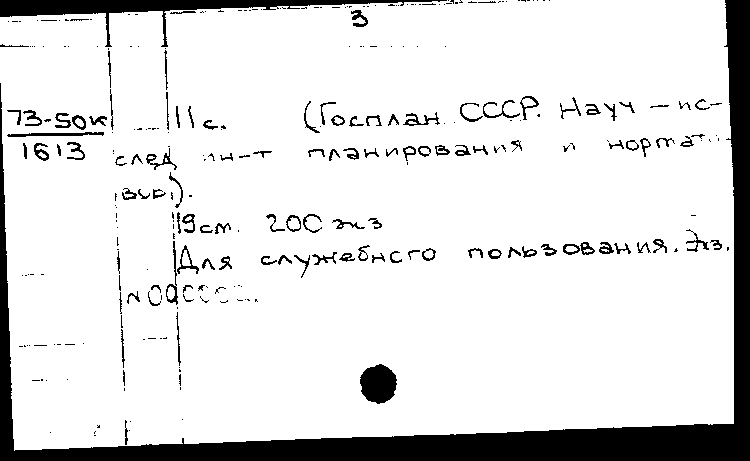 3
73-50к 11 с. (Госплан СССР. Науч-ис-
1613 след ин-т планирования и нормати-
вов).
19 см. 200 экз
Для служебного пользования. Экз.
N 000002.